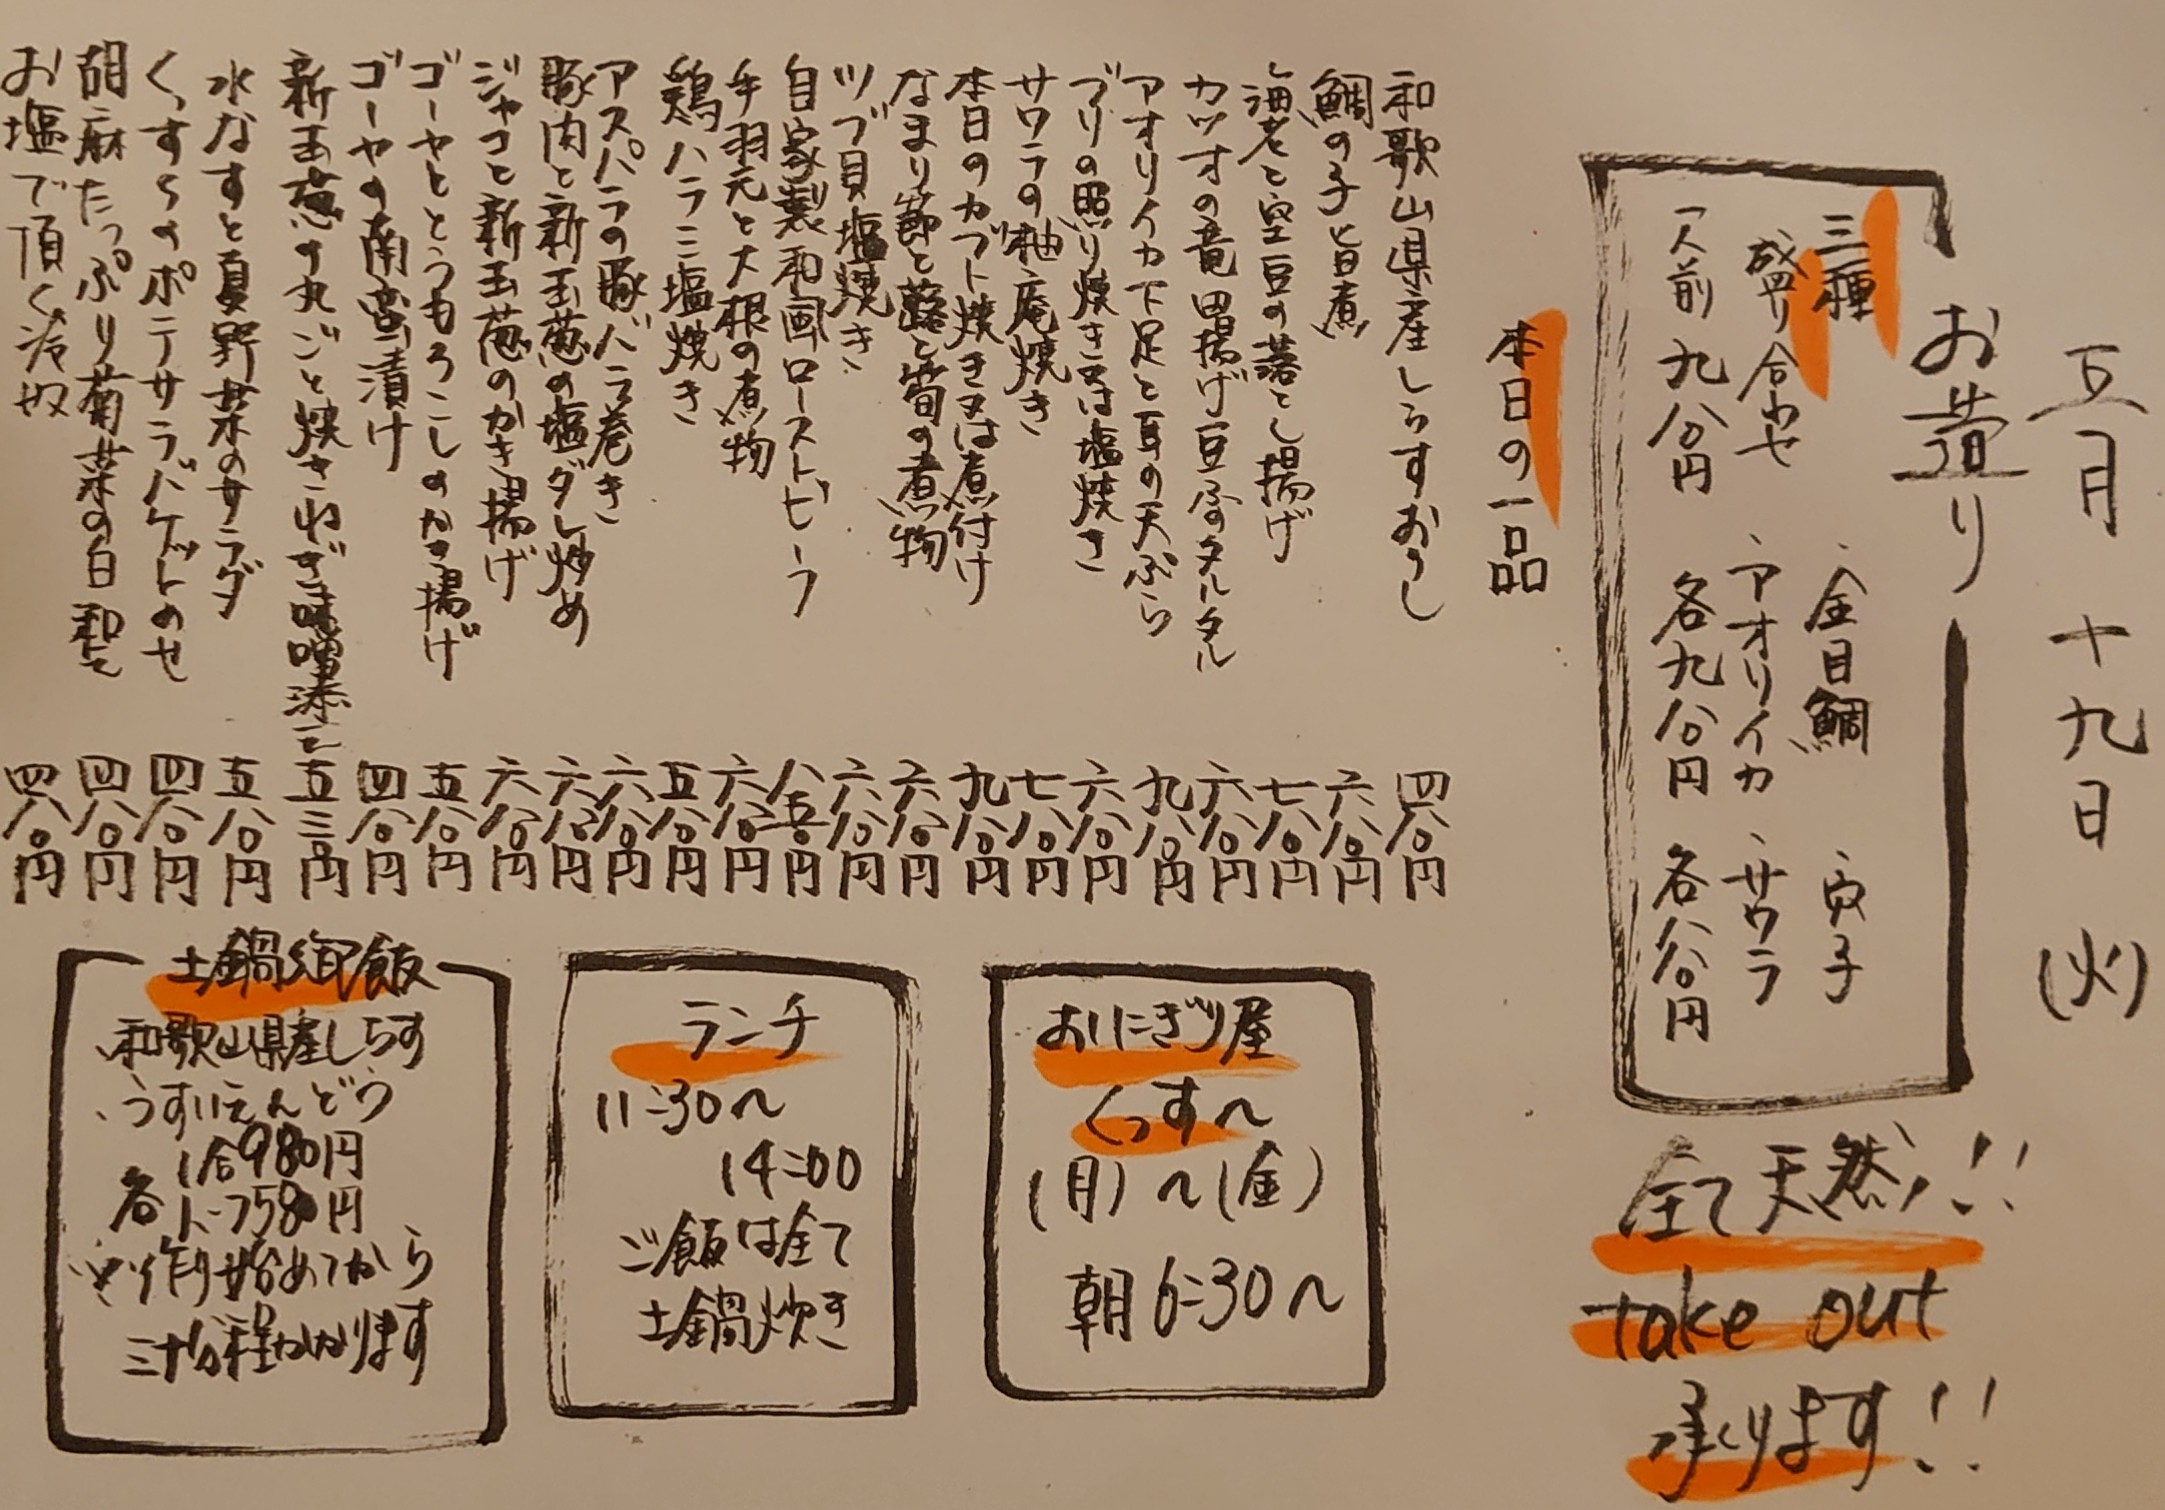 五月十九日(火)
お造り
三種
盛り合わせ
一人前 九八〇円
、金目鯛 、穴子
、アオリイカ 、サワラ
各九八〇円 各八八〇円
全て天然!!
take out
承ります!!
本日の一品
和歌山県産しらすおろし 四八〇円
鯛の子旨煮 六八〇円
海老と空豆の落とし揚げ 七八〇円
カツオの竜田揚げ豆ふのタルタル 六八〇円
アオリイカ下足と耳の天ぷら 九八〇円
ブリの照り焼き又は塩焼き 六八〇円
サワラの柚庵焼き 七八〇円
本日のカブト焼き又は煮付け 九八〇円
なまり節と蕗と筍の煮物 六八〇円
ツブ貝塩焼き 六八〇円
自家製和風ローストビーフ 八五〇円
手羽元と大根の煮物 六八〇円
鶏ハラミ塩焼き 五八〇円
アスパラの豚バラ巻き 六八〇円
豚肉と新玉葱の塩ダレ炒め 六八〇円
ジャコと新玉葱のかき揚げ 六八〇円
ゴーヤととうもろこしのかき揚げ 五八〇円
ゴーヤの南蛮漬け 四八〇円
新玉葱の丸ごと焼きねぎ味噌添え 五三〇円
水なすと夏野菜のサラダ 五八〇円
くっすらのポテサラバケットのせ 四八〇円
胡麻たっぷり菊菜の白和え 四八〇円
お塩で頂く冷奴 四八〇円
おにぎり屋
くっす〜
(月)〜(金)
朝6:30〜
ランチ
11:30〜
14:00
ご飯は全て
土鍋炊き
土鍋御飯
、和歌山県産しらす
、うすいえんどう
1合980円
各ハーフ580円
※作り始めてから
三十分程かかります